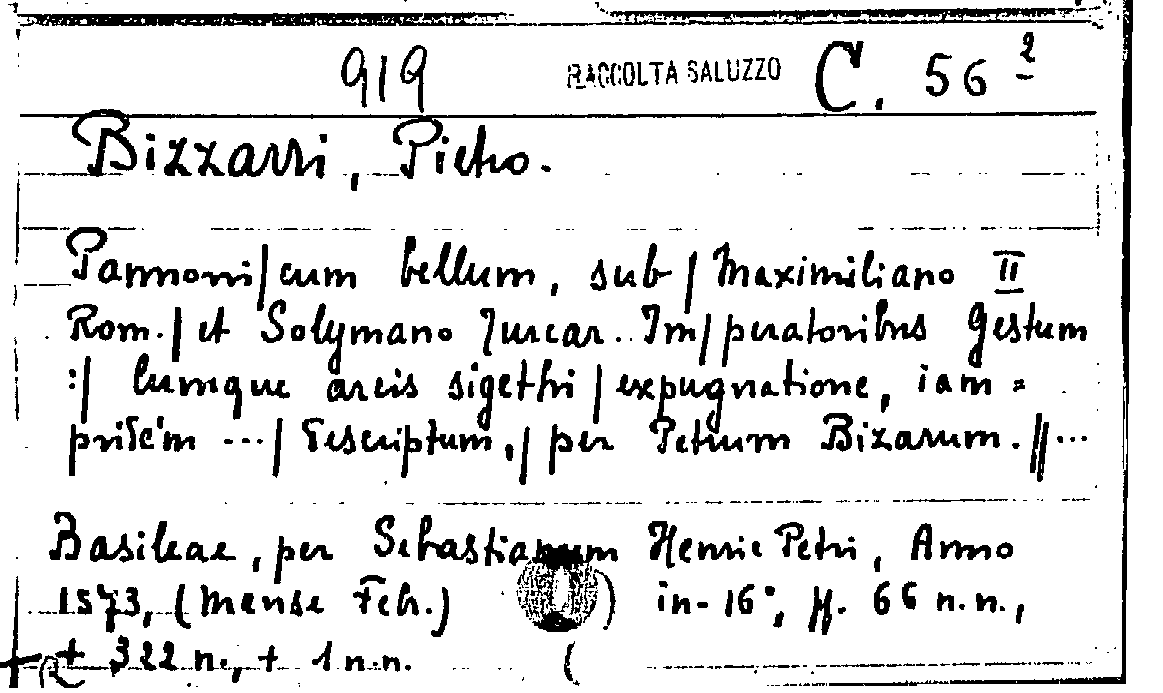 919 RACCOLTA SALUZZO C. 56 2
Bizzarri, Pietro.
Pannoni/cum bellum, sub / Maximiliano II
Rom./ et Solymano Turcar. Im/peratoribus gestum
:/ cumque arcis sigethi / expugnatione, iam=
pridém ... / descriptum, / per Petrum Bizarum. // ...
Basileae, per Sebastianum Henric Petri, Anno
1573, (mense Febr.) in-16°, pp. 66 n.n.,
+ 322 n., + 1 n.n.